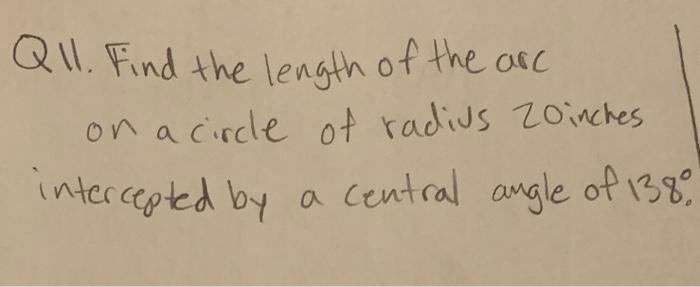 Q11. Find the length of the arc
on a circle of radius 20 inches
intercepted by a central angle of 138°.